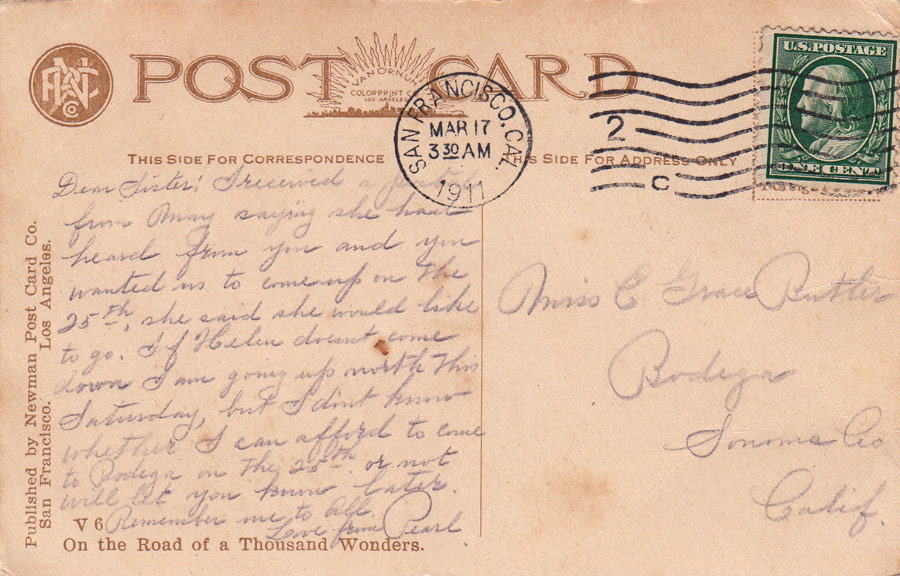 POST CARD
VAN ORNUM
COLORPRINT CO.
LOS ANGELES
SAN FRANCISCO, CAL.
MAR 17
3 30 AM
1911
2
C
U.S. POSTAGE
ONE CENT
THIS SIDE FOR CORRESPONDENCE
THIS SIDE FOR ADDRESS ONLY
Dear Sister! I received a postal
from May saying she had
heard from you and you
wanted us to come up on the
25th, she said she would like
to go. If Helen doesnt come
down I am going up north this
Saturday, but I dont know
whether I can afford to come
to Bodega on the 25th or not
will let you know later.
Remember me to all.
Love from Pearl
Miss E Grace Butler
Bodega
Sonoma Co
Calif.
Published by Newman Post Card Co.
San Francisco. Los Angeles.
V 6
On the Road of a Thousand Wonders.